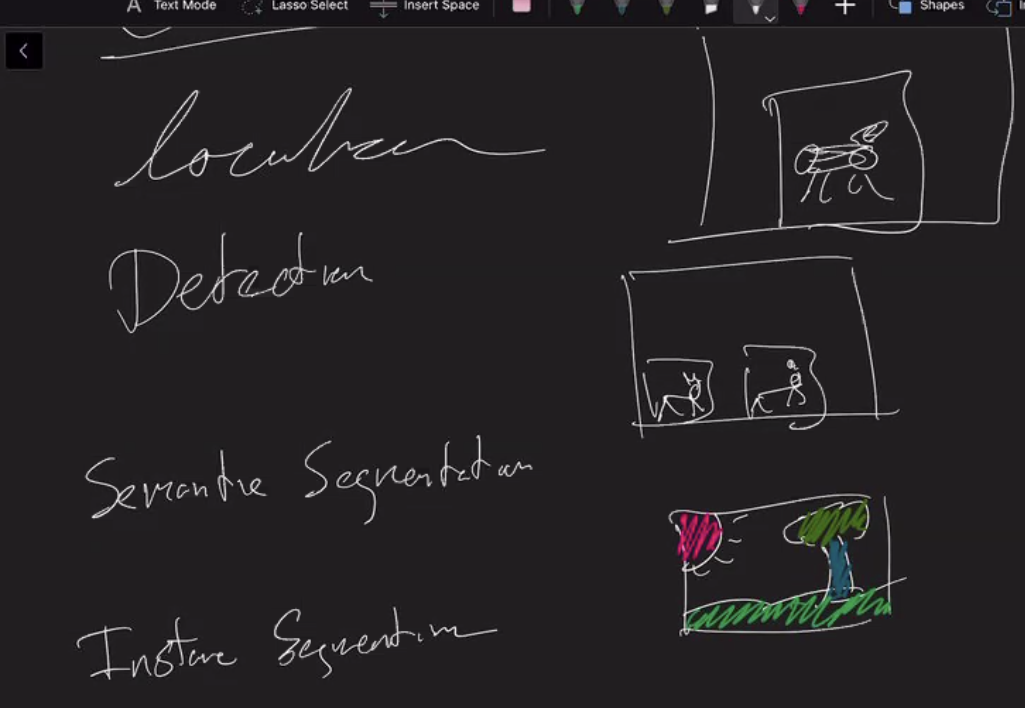 Text Mode
Lasso Select
Insert Space
Shapes
Detection
Semantic Segmentation
Instance Segmentation